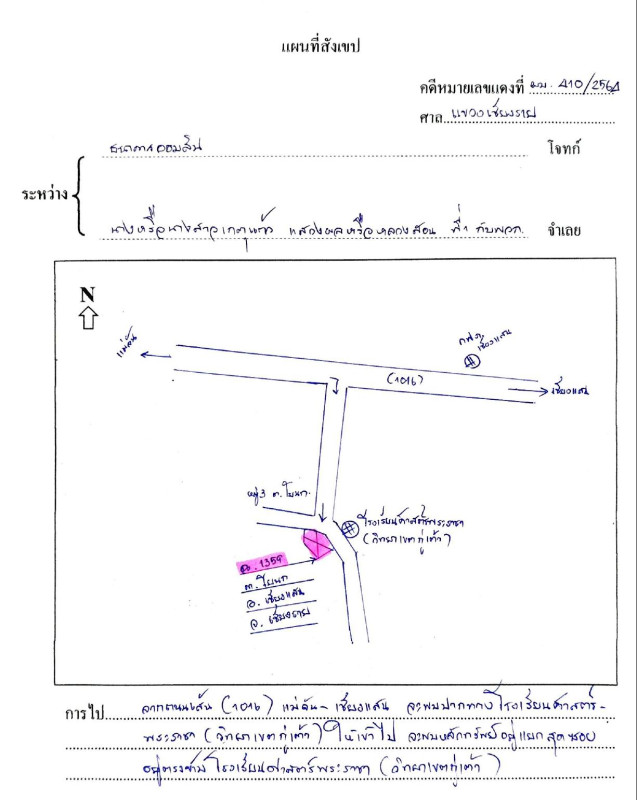 แผนที่สังเขป
คดีหมายเลขแดงที่ ผบ. 410/2564
ศาล แขวงเชียงราย
ธนาคารออมสิน โจทก์
ระหว่าง
นางหรือนางสาวเกตุแก้ว แสวงผลหรือหลวงสอน ที่1 กับพวก. จำเลย
N
แม่จัน
กฟภ.
เชียงแสน
(1016)
เชียงแสน
หมู่ 3 ต.โยนก.
โรงเรียนศาสตร์พระราชา
(วิทยาเขตกู่เต้า)
ฉ. 1359
ต. โยนก
อ. เชียงแสน
จ. เชียงราย
การไป จากถนนเส้น (1016) แม่จัน - เชียงแสน จะพบปากทางโรงเรียนศาสตร์-
พระราชา (วิทยาเขตกู่เต้า) ให้เข้าไป จะพบหลักทรัพย์อยู่แยกสุดซอย
อยู่ตรงข้ามโรงเรียนศาสตร์พระราชา (วิทยาเขตกู่เต้า)